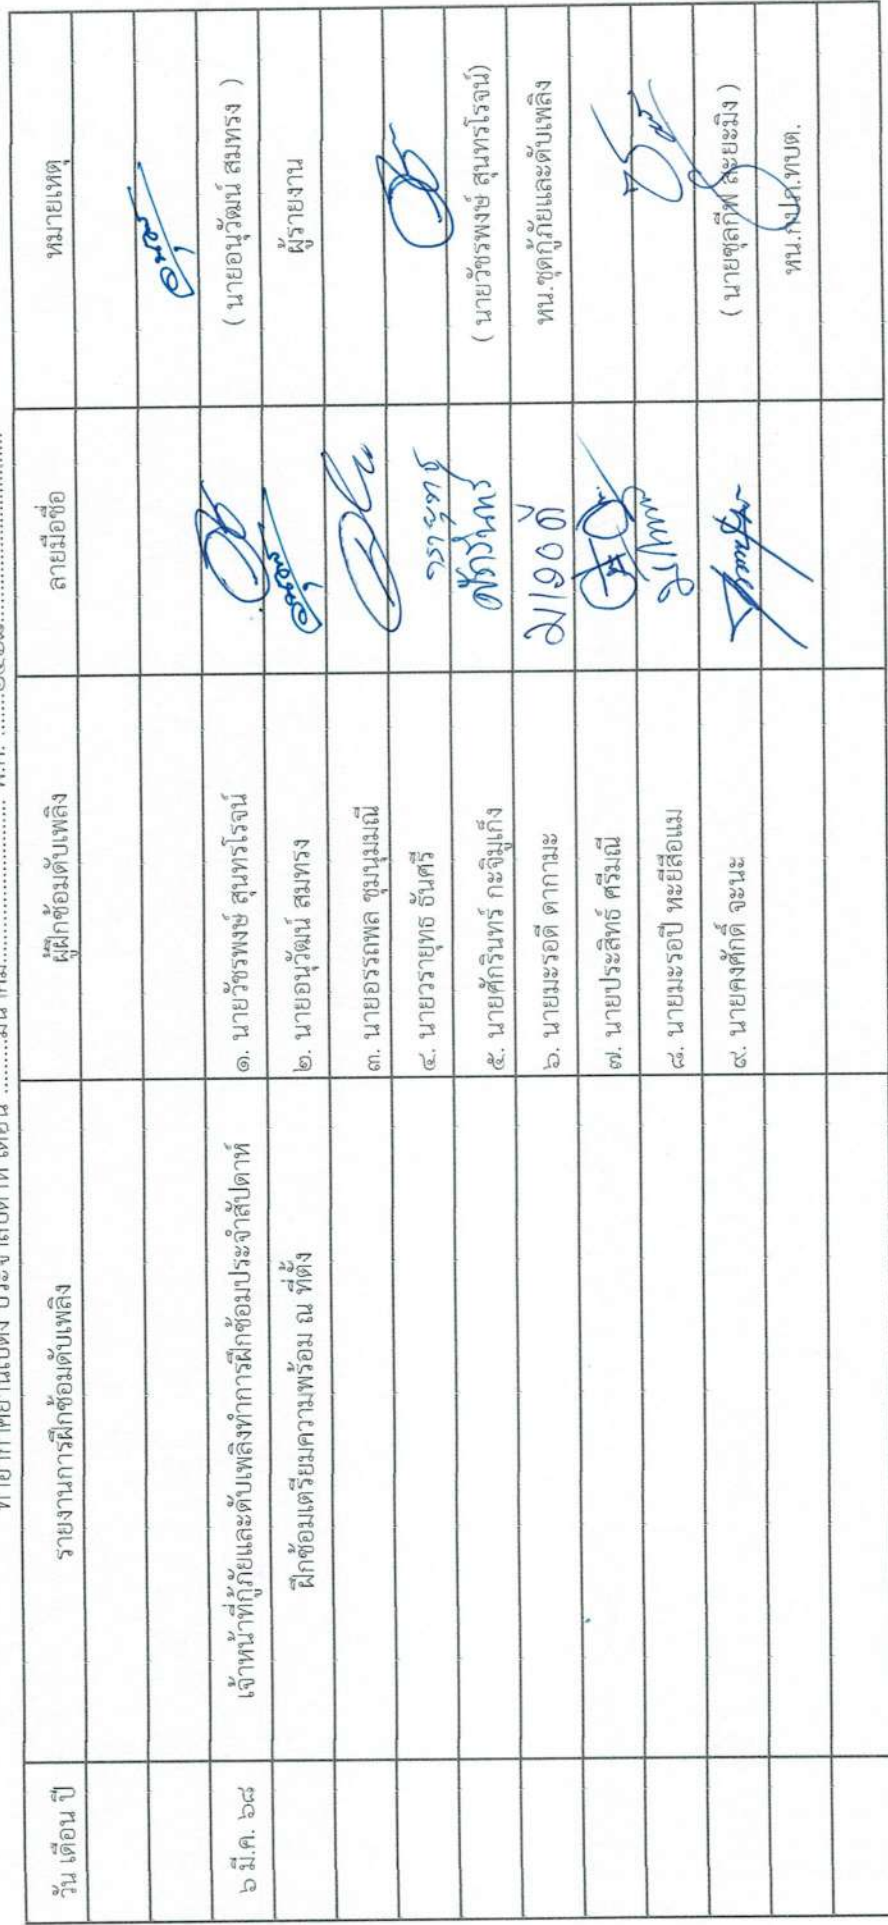 ท่าอากาศยานเบตง ประจำสัปดาห์ เดือน ..........มีนาคม.......... พ.ศ. .......๒๕๖๘.......
วัน เดือน ปี	รายงานการฝึกซ้อมดับเพลิง	ผู้ฝึกซ้อมดับเพลิง	ลายมือชื่อ	หมายเหตุ
๖ มี.ค. ๖๘	เจ้าหน้าที่กู้ภัยและดับเพลิงทำการฝึกซ้อมประจำสัปดาห์	๑. นายวัชรพงษ์ สุนทรโรจน์	( นายอนุวัฒน์ สมทรง )
ฝึกซ้อมเตรียมความพร้อม ณ ที่ตั้ง	๒. นายอนุวัฒน์ สมทรง	ผู้รายงาน
๓. นายอรรถพล ชุมนุมมณี
๔. นายวรายุทธ ธันศรี	วรายุทธ
๕. นายศักรินทร์ กะจิมูเก็ง	ศักรินทร์	( นายวัชรพงษ์ สุนทรโรจน์)
๖. นายมะรอดี ดากามะ	หน.ชุดกู้ภัยและดับเพลิง
๗. นายประสิทธ์ ศรีมณี
๘. นายมะรอปี หะยีสือแม
๙. นายคงศักดิ์ จะนะ	( นายซุลกีฟ สะยะมิง )
หน.กปภ.ทบต.